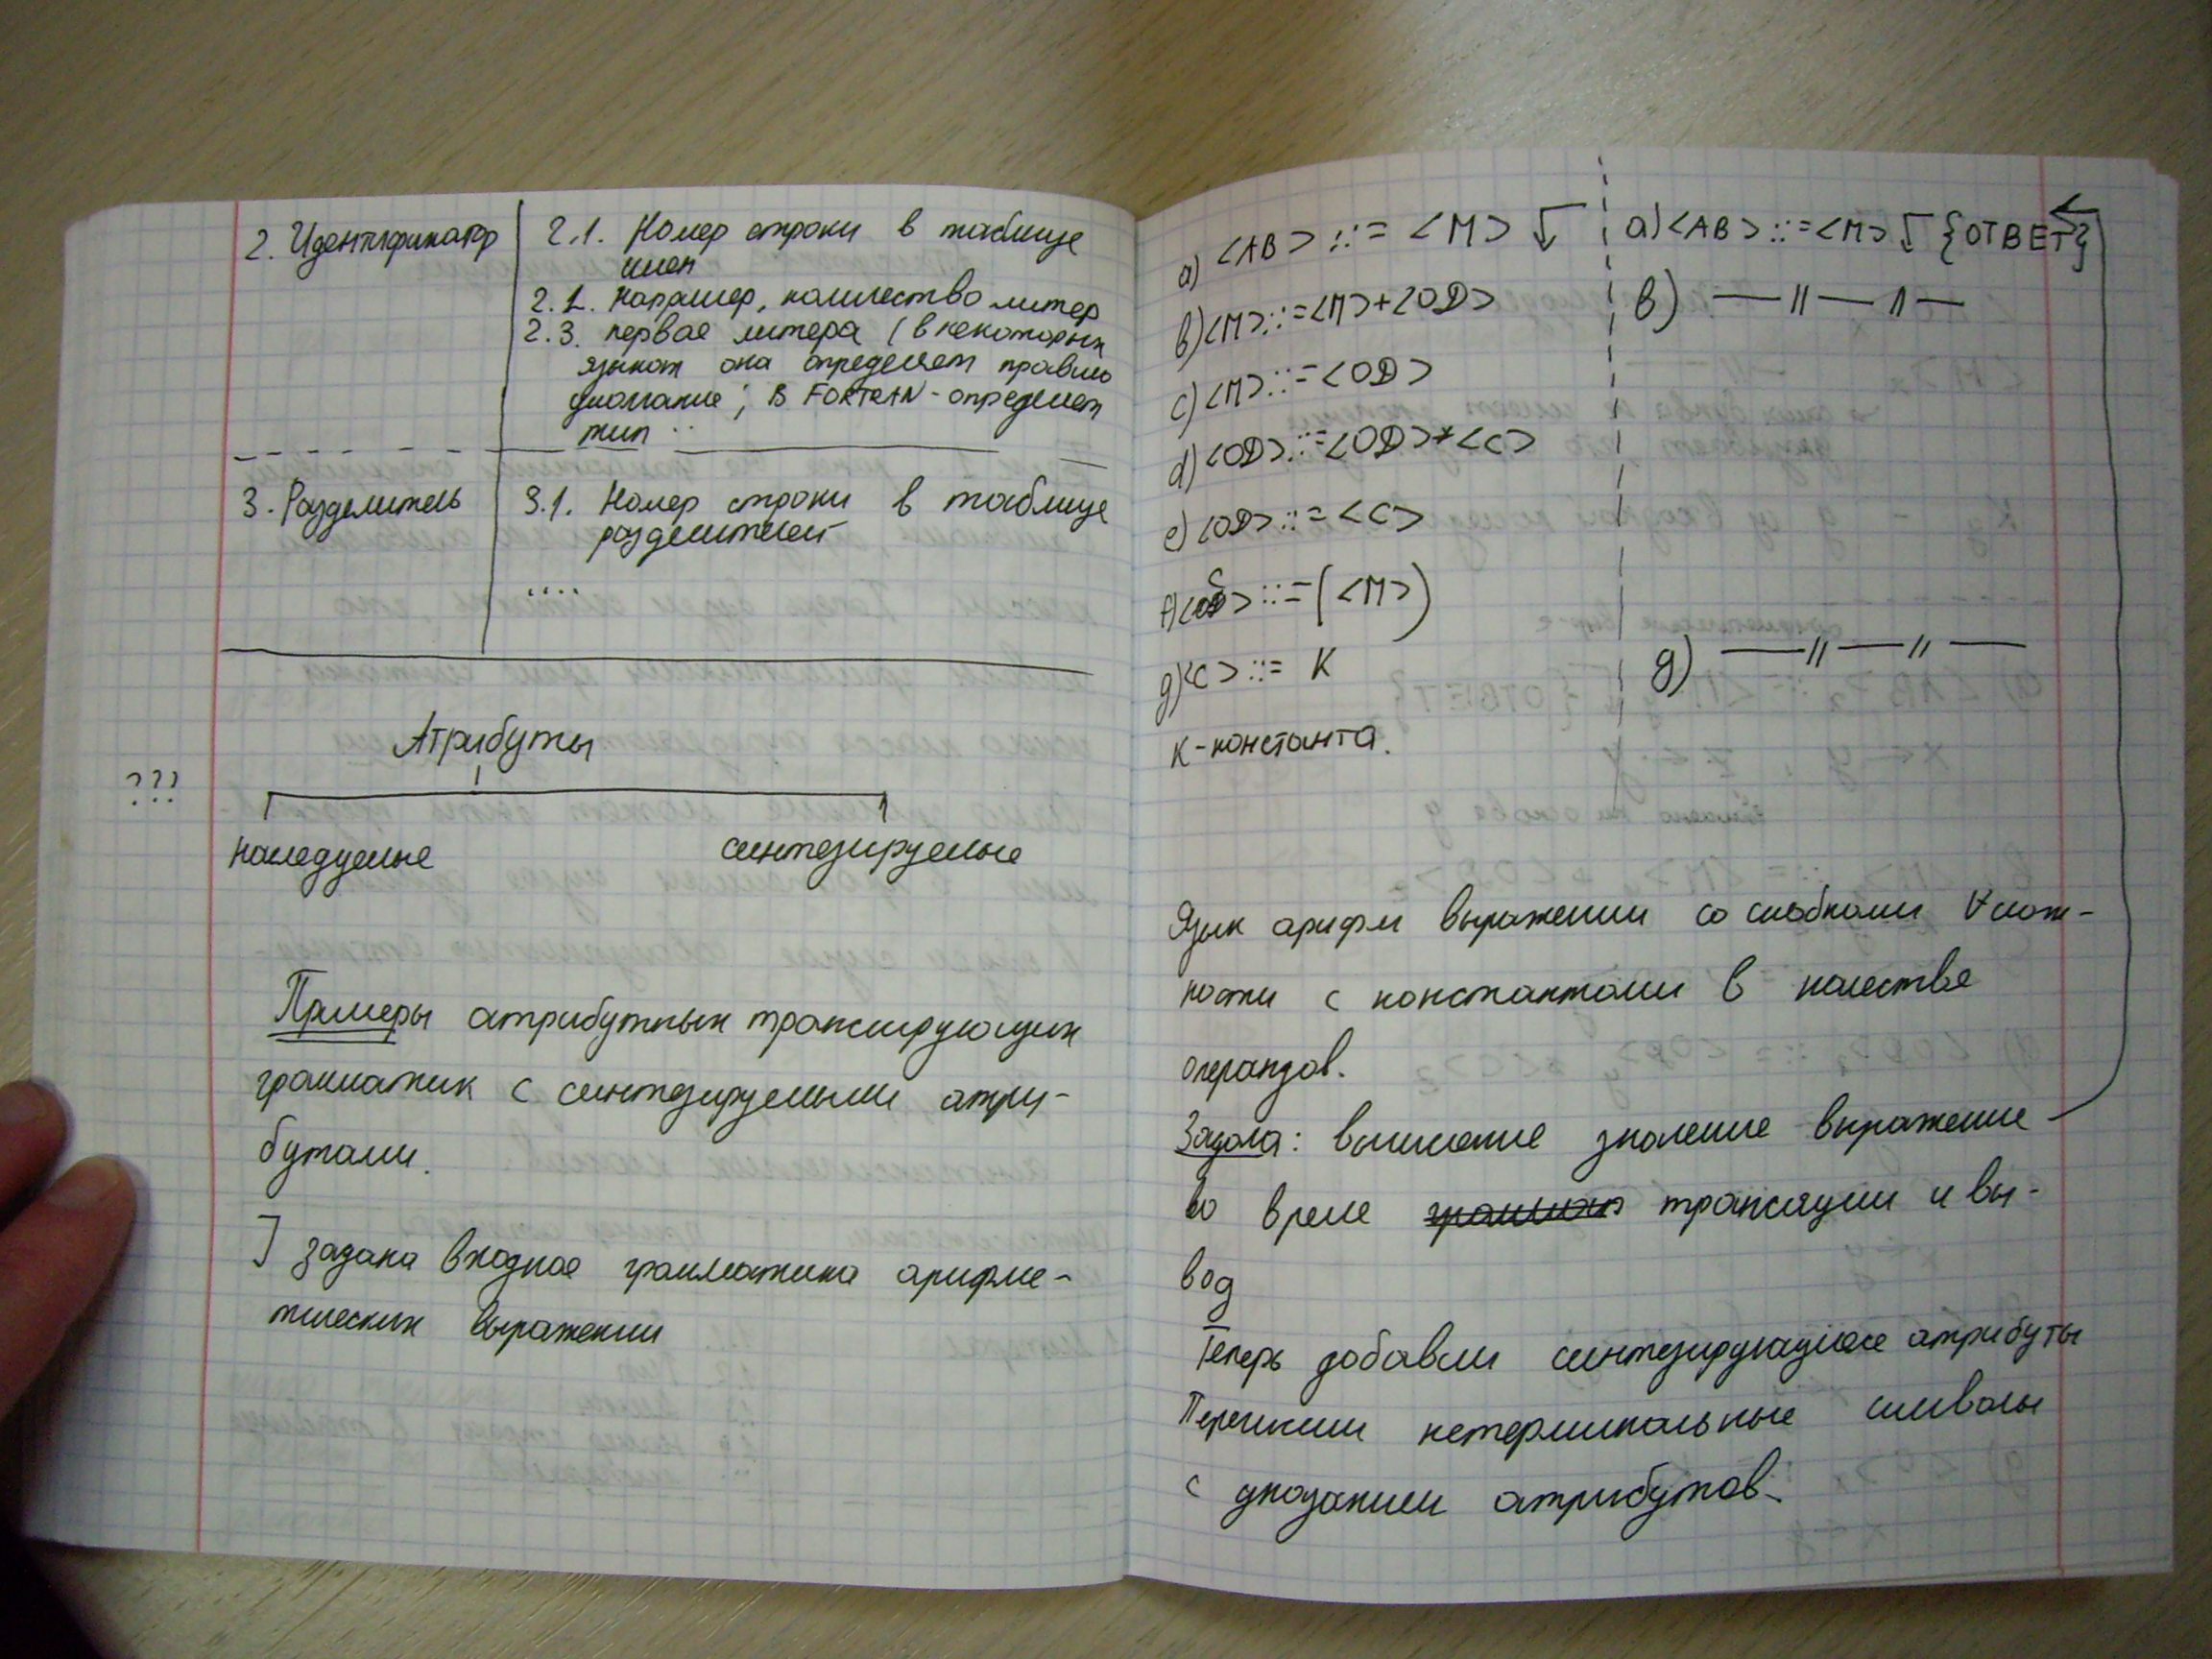 2. Идентификатор
2.1. Номер строки в таблице
имен
2.2. Например, количество литер
2.3. первая литера (в некоторых
языках она определяет правило
умолчание; в FORTRAN - определяет
тип ..
3. Разделитель
3.1. Номер строки в таблице
разделителей
....
Атрибуты
???
наследуемые
синтезируемые
Примеры атрибутных транслирующих
грамматик с синтезируемыми атри-
бутами.
] задана входная грамматика арифме-
тических выражении
a) <AB> ::= <M> ↲
b) <M> ::= <M>+<OD>
c) <M> ::= <OD>
d) <OD> ::= <OD>*<C>
e) <OD> ::= <C>
f) <C> ::= (<M>)
g) <C> ::= K
K - константа.
a) <AB> ::= <M> ↲ {ОТВЕТ}
b) — || — || —
g) — || — || —
Язык арифм выражении со скобками ∀ слож-
ности с константами в качестве
операндов.
Задача: вычисление значение выражение
во время трансляции и вы-
вод
Теперь добавли синтезирующие атрибуты
Перечислим нетерминальные символы
с указанием атрибутов.